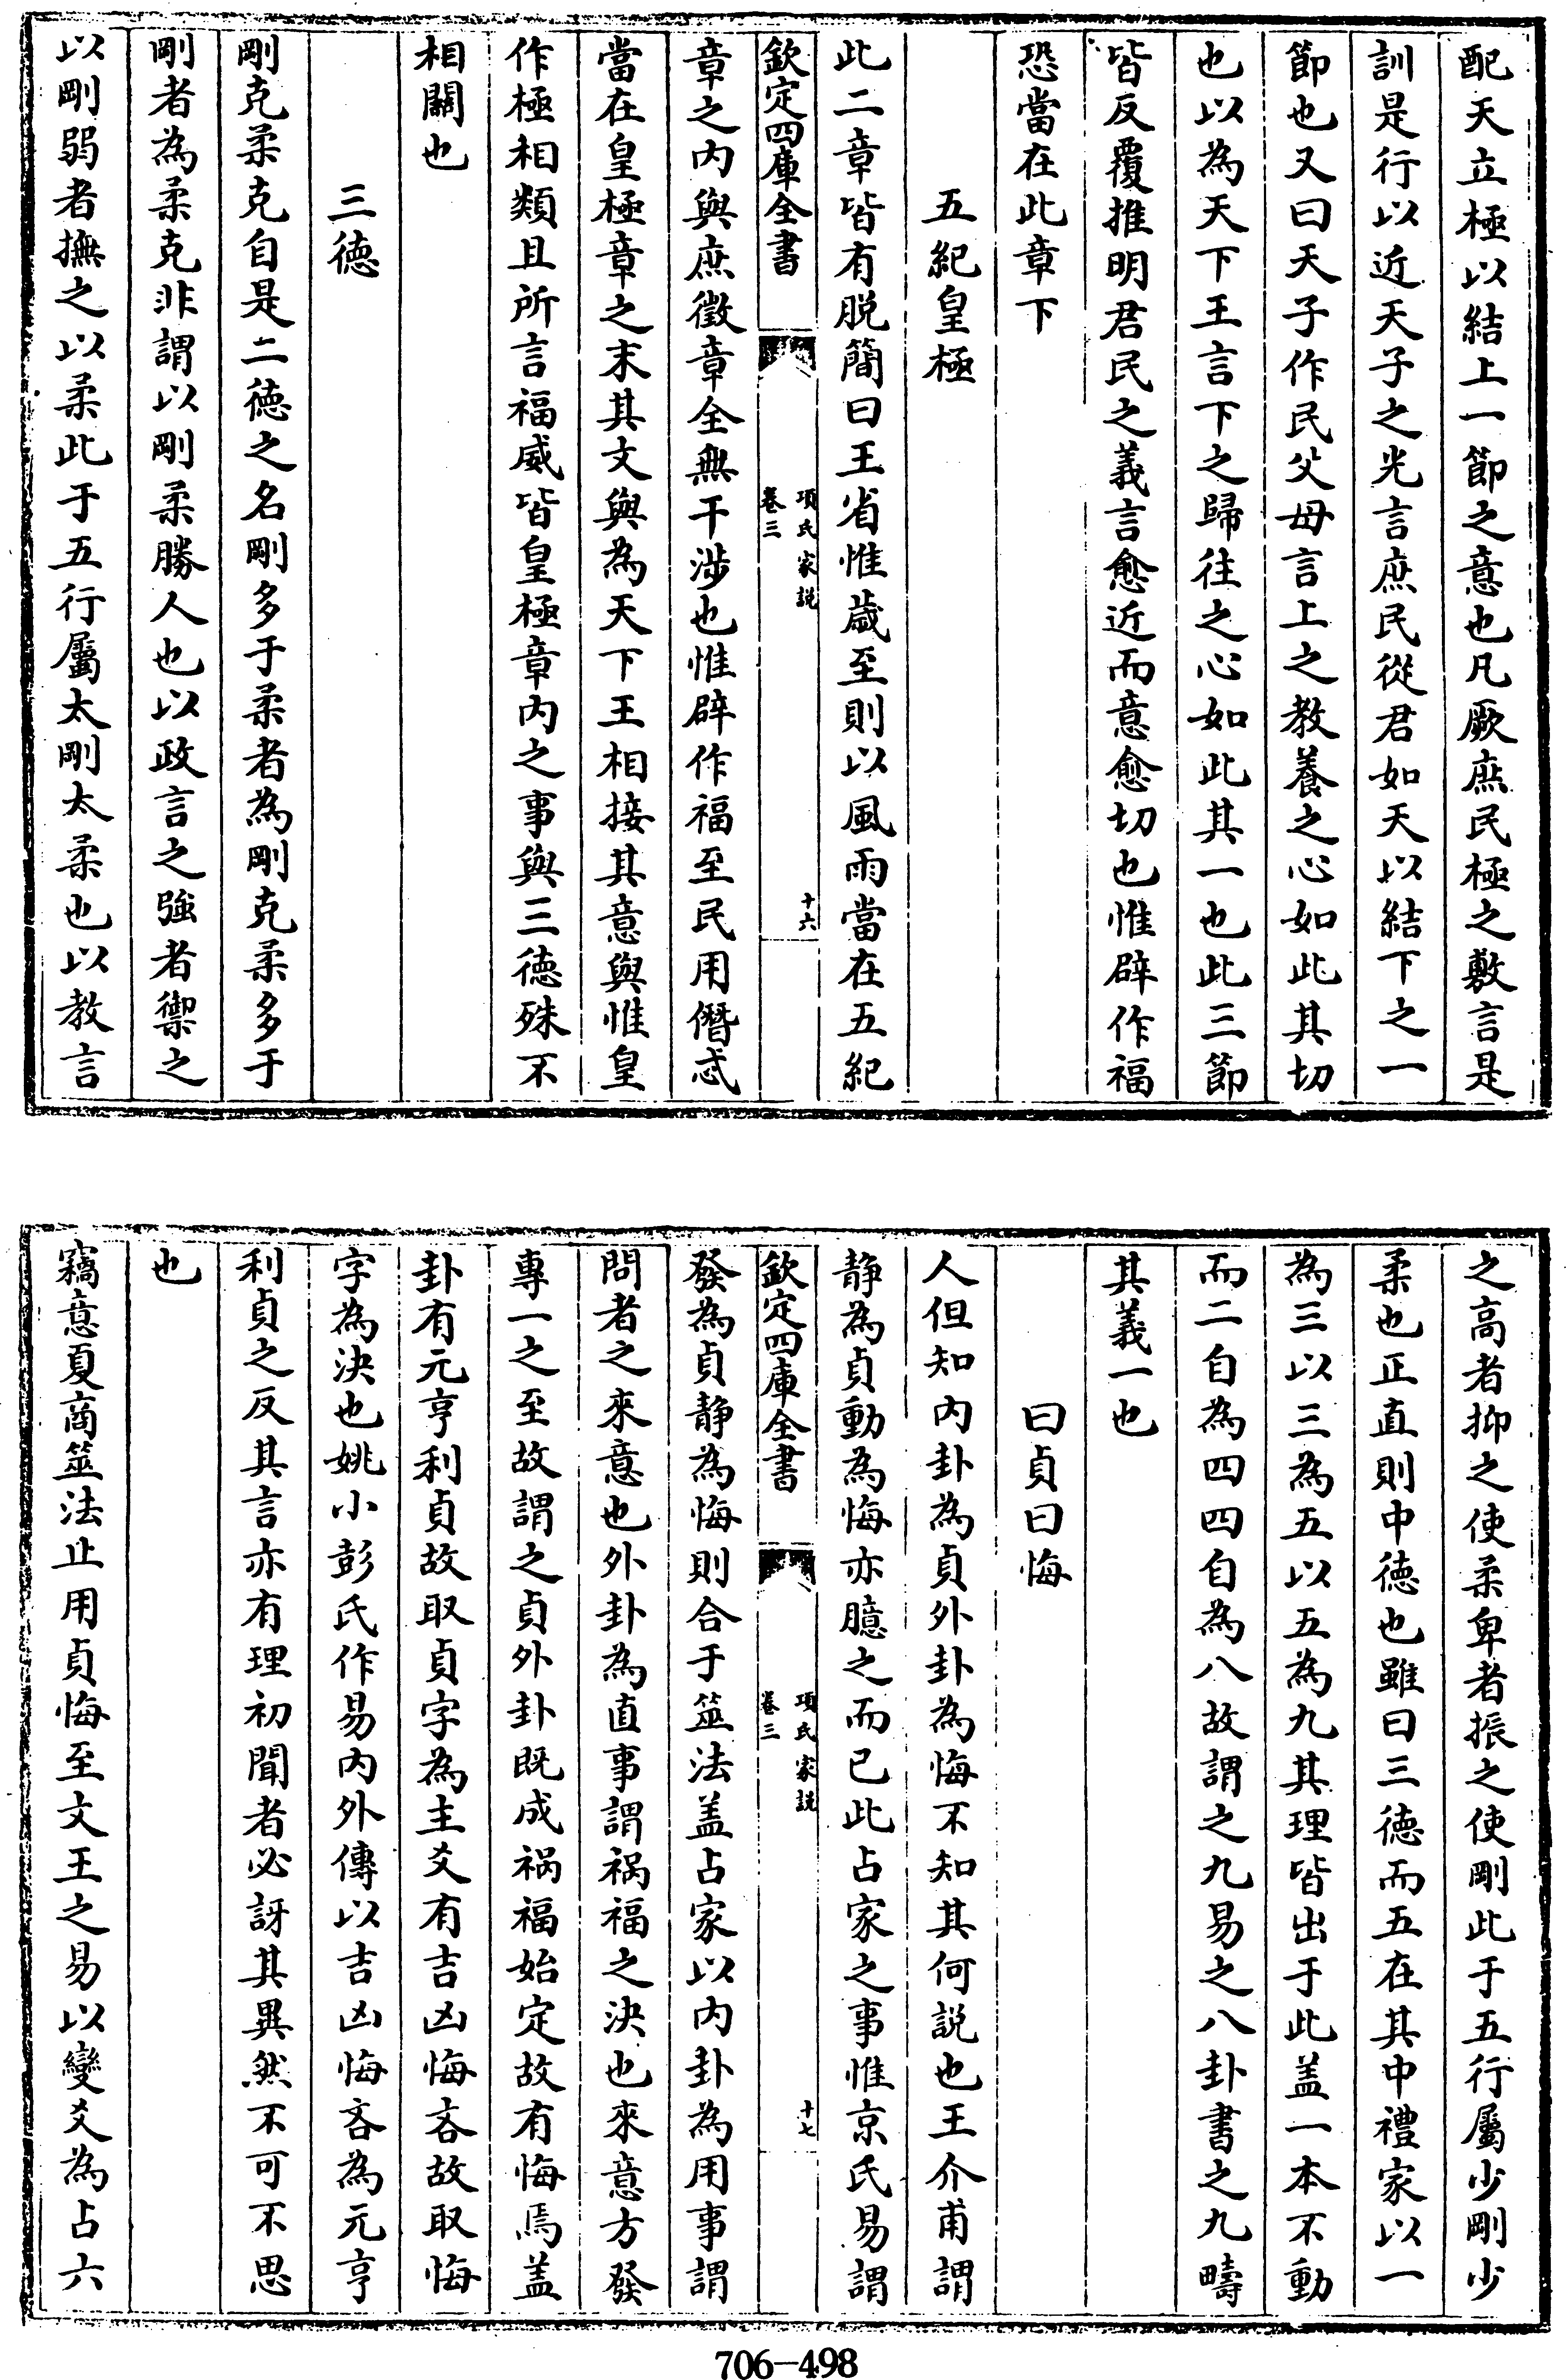 配天立極以結上一節之意也凡厥庶民極之敷言是
訓是行以近天子之光言庶民從君如天以結下之一
節也又曰天子作民父母言上之教養之心如此其切
也以為天下王言下之歸往之心如此其一也此三節
皆反覆推明君民之義言愈近而意愈切也惟辟作福
恐當在此章下
五紀皇極
此二章皆有脱簡曰王省惟歲至則以風雨當在五紀
欽定四庫全書
項氏家説
卷三
十六
章之内與庶徵章全無干涉也惟辟作福至民用僭忒
當在皇極章之末其文與為天下王相接其意與惟皇
作極相類且所言福威皆皇極章内之事與三德殊不
相關也
三德
剛克柔克自是二德之名剛多于柔者為剛克柔多于
剛者為柔克非謂以剛柔勝人也以政言之強者禦之
以剛弱者撫之以柔此于五行屬太剛太柔也以教言
之高者抑之使柔卑者振之使剛此于五行屬少剛少
柔也正直則中德也雖曰三德而五在其中禮家以一
為三以三為五以五為九其理皆出于此盖一本不動
而二自為四四自為八故謂之九易之八卦書之九疇
其義一也
曰貞曰悔
人但知内卦為貞外卦為悔不知其何説也王介甫謂
静為貞動為悔亦臆之而已此占家之事惟京氏易謂
欽定四庫全書
項氏家説
卷三
十七
發為貞静為悔則合于筮法盖占家以内卦為用事謂
問者之來意也外卦為直事謂禍福之決也來意方發
專一之至故謂之貞外卦既成禍福始定故有悔焉盖
卦有元亨利貞故取貞字為主爻有吉凶悔吝故取悔
字為決也姚小彭氏作易内外傳以吉凶悔吝為元亨
利貞之反其言亦有理初聞者必訝其異然不可不思
也
竊意夏商筮法止用貞悔至文王之易以變爻為占六
706-498